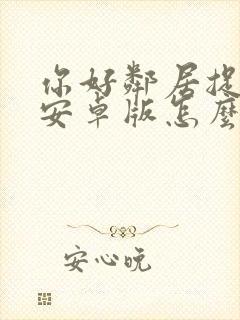 你好鄰居捉
安卓版怎麼
安心晚